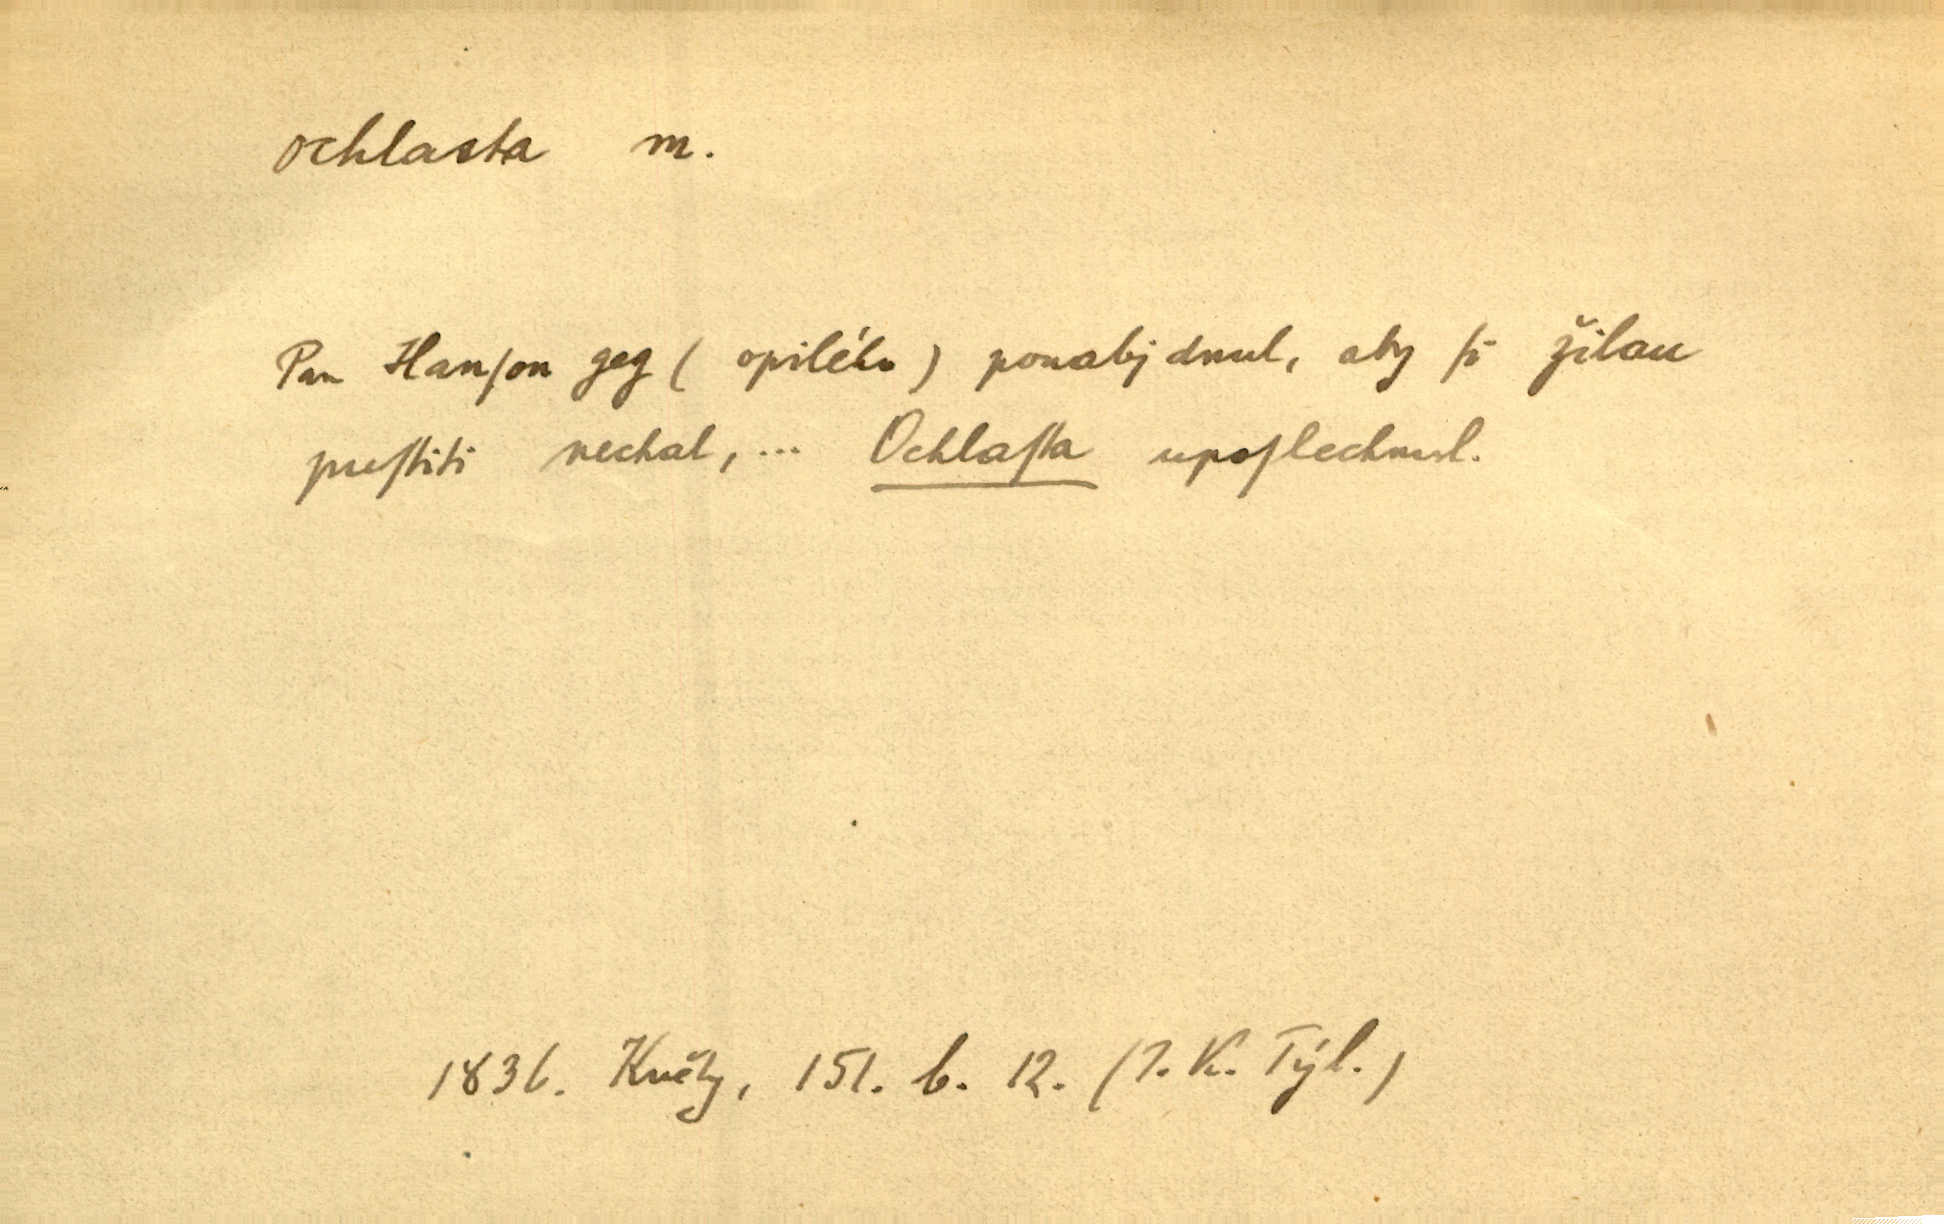 ochlasta m.
Pan Hanſon geg ( opilého ) ponabjdnul, aby ſi žilau
puſtiti nechal, ... Ochlaſta upoſlechnul.
1836. Květy, 151. b. 12. (J. K. Týl.)